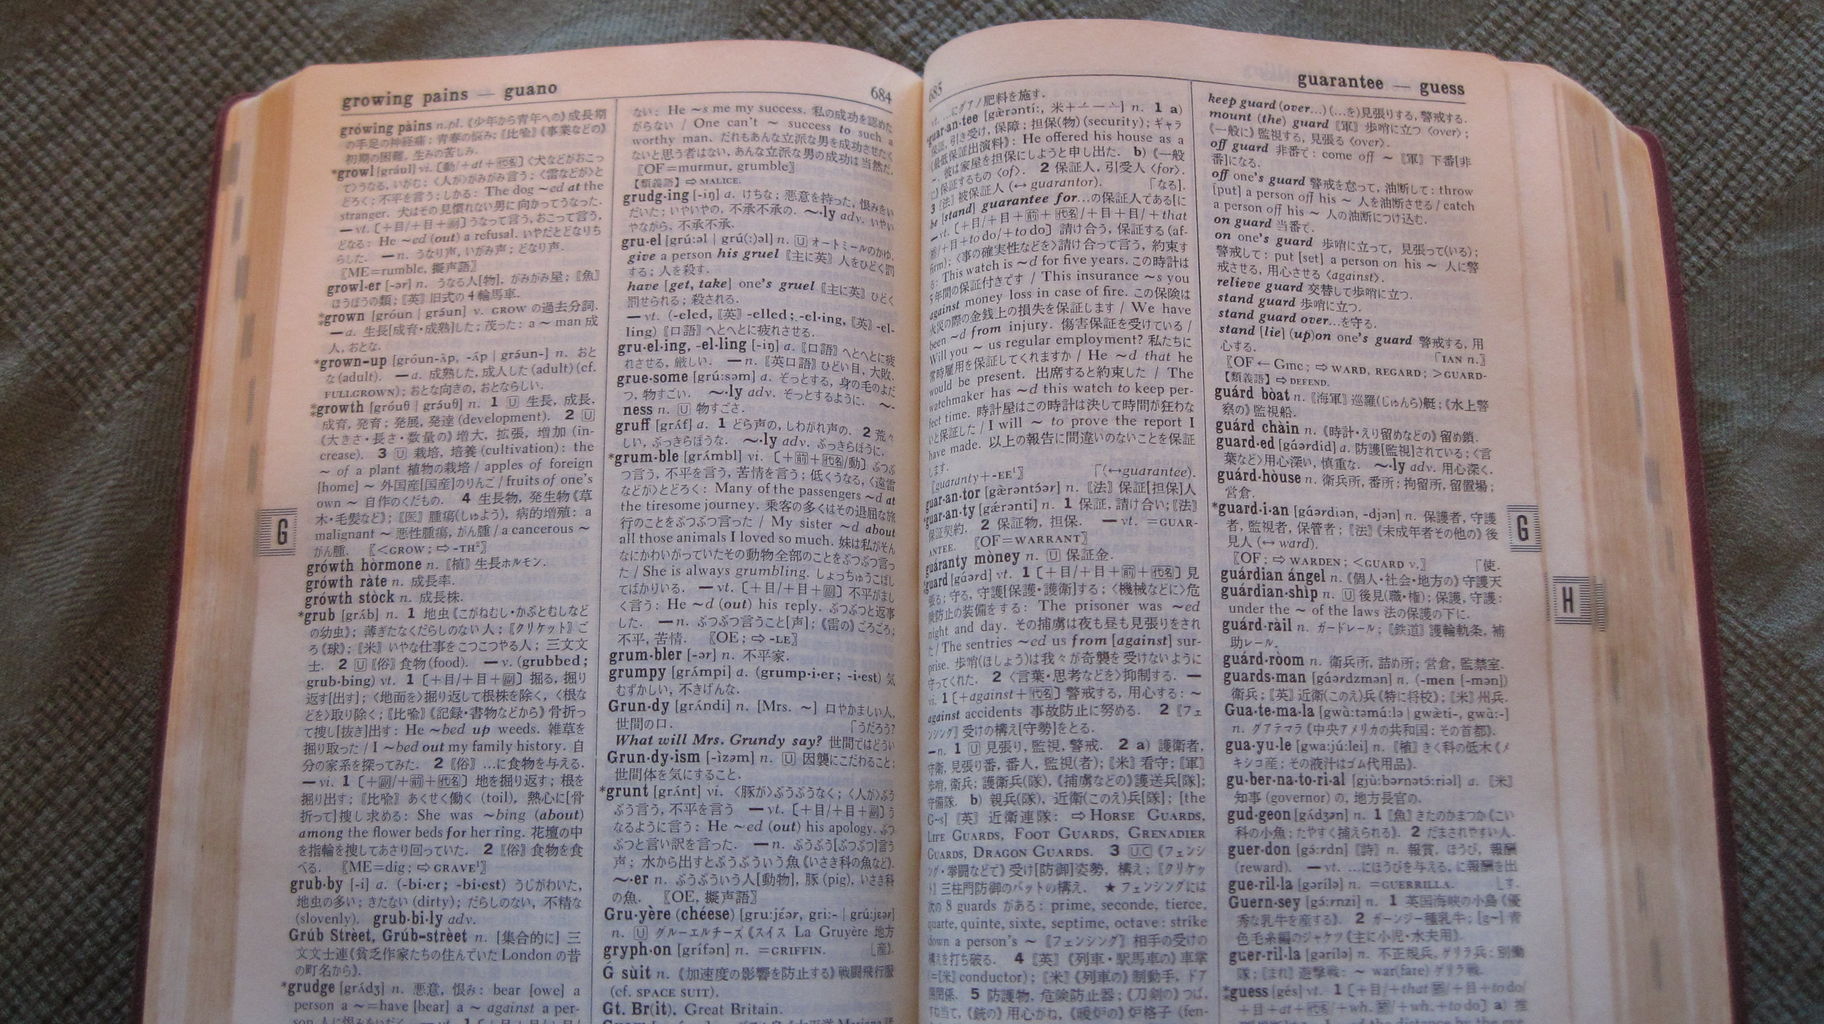 growing pains — guano
684
grówing pàins n.pl. 《少年から青年への》成長期
の手足の神経痛; 青春の悩み; 〖比喩〗《事業などの》
初期の困難, 生みの苦しみ.
とどろく; 不平を言う; しかる: The dog ~ed at the
stranger. 犬はその見慣れない男に向かってうなった.
—vt. [+目/+目+副] うなって言う, おこって言う,
どなる: He ~ed (out) a refusal. いやだとどなりち
らした. —n. うなり声, いがみ声; どなり声.
〖ME=rumble, 擬声語〗
growl·er [-ər] n. うなる人[物], がみがみ屋; 〖魚〗
ほうぼうの類; 〖英〗旧式の4輪馬車.
*grown [gróun | gráun] v. GROW の過去分詞.
—a. 生長[成育・成熟]した; 茂った: a ~ man 成
人, おとな.
*grown-up [gróun-ʌ̀p, -ʌ́p | gráun-] n. おと
な (adult). —a. 成熟した, 成人した (adult) (cf.
FULLGROWN); おとな向きの, おとならしい.
*growth [gróuθ | gráuθ] n. 1 U 生長, 成長.
成育, 発育; 発展, 発達 (development). 2 U
《大きさ・長さ・数量の》増大, 拡張, 増加 (in-
crease). 3 U 栽培, 培養 (cultivation): the
~ of a plant 植物の栽培 / apples of foreign
[home] ~ 外国産[国産]のりんご / fruits of one's
own ~ 自作のくだもの. 4 生長物, 発生物《草
木・毛髪など》; 〖医〗腫瘍(しゅよう), 病的増殖: a
malignant ~ 悪性腫瘍, がん腫 / a cancerous ~
がん腫. 〖<GROW; ⇨ -TH²〗
grówth hòrmone n. 〖植〗生長ホルモン.
grówth ràte n. 成長率.
grówth stòck n. 成長株.
*grub [grʌ́b] n. 1 地虫《こがねむし・かぶとむしなど
の幼虫》; 薄ぎたなくだらしのない人; 〖クリケット〗ご
ろ《球》; 〖米〗いやな仕事をこつこつやる人; 三文文
士. 2 U 〖俗〗食物 (food). —v. (grubbed;
grub·bing) vt. 1 [+目/+目+副] 掘る, 掘り
返す[出す]; 〈地面を〉掘り返して根株を除く, 〈根な
どを〉取り除く; 〖比喩〗《記録・書物などから》骨折っ
て捜し[抜き]出す: He ~bed up weeds. 雑草を
掘り取った / I ~bed out my family history. 自
分の家系を探ってみた. 2 〖俗〗…に食物を与える.
—vi. 1 [+副/+前+代名] 地を掘り返す; 根を
掘り出す; 〖比喩〗あくせく働く (toil), 熱心に[骨
折って]捜し求める: She was ~bing (about)
among the flower beds for her ring. 花壇の中
を指輪を捜してあさり回っていた. 2 〖俗〗食物を食
べる. 〖ME=dig; ⇨ GRAVE¹〗
grub·by [-i] a. (-bi·er; -bi·est) うじがわいた,
地虫の多い; きたない (dirty); だらしのない, 不精な
(slovenly). grub·bi·ly adv.
Grúb Strèet, Grúb-strèet n. [集合的に] 三
文文士連《貧乏作家たちの住んでいた London の昔
の町名から》.
*grudge [grʌ́dʒ] n. 悪意, 恨み: bear [owe] a
person a ~=have [bear] a ~ against a per-
ない: He ~s me my success. 私の成功を認めた
がらない / One can't ~ success to such a
worthy man. だれもあんな立派な男を成功させたく
ないと思う者はない, あんな立派な男の成功は当然だ.
〖OF=murmur, grumble〗
【類義語】 ⇨ MALICE.
grudg·ing [-iŋ] a. けちな; 悪意を持った, 恨みをい
だいた; いやいやの, 不承不承の. ~·ly adv. いやい
やながら, 不承不承.
gru·el [grú:əl | grú(:)əl] n. U オートミールのかゆ.
give a person his gruel 〖主に英〗人をひどく罰
する; 人を殺す.
have [get, take] one's gruel 〖主に英〗ひどく
罰せられる; 殺される.
—vt. (-eled, 〖英〗-elled; -el·ing, 〖英〗-el-
ling) 〖口語〗へとへとに疲れさせる.
gru·el·ing, -el·ling [-iŋ] a. 〖口語〗へとへとに疲
れさせる, 厳しい. —n. 〖英口語〗ひどい目, 大敗.
grue·some [grú:səm] a. ぞっとする, 身の毛のよだ
つ, 物すごい. ~·ly adv. ぞっとするように. ~·
ness n. U 物すごさ.
gruff [grʌ́f] a. 1 どら声の, しわがれ声の. 2 荒々
しい, ぶっきらぼうな. ~·ly adv. ぶっきらぼうに.
*grum·ble [grʌ́mbl] vi. [+前+代名/動] ぶつぶ
つ言う, 不平を言う, 苦情を言う; 低くうなる, 〈遠雷
などが〉とどろく: Many of the passengers ~d at
the tiresome journey. 乗客の多くはその退屈な旅
行のことをぶつぶつ言った / My sister ~d about
all those animals I loved so much. 妹は私がそん
なにかわいがっていたその動物全部のことをぶつぶつ言っ
た / She is always grumbling. しょっちゅうこぼし
てばかりいる. —vt. [+目/+目+副] 不平がまし
く言う: He ~d (out) his reply. ぶつぶつと返事
した. —n. ぶつぶつ言うこと[声]; 《雷の》ごろごろ;
不平, 苦情. 〖OE; ⇨ -LE〗
grum·bler [-ər] n. 不平家.
grumpy [grʌ́mpi] a. (grump·i·er; -i·est) 気
むずかしい, 不きげんな.
Grun·dy [grʌ́ndi] n. [Mrs. ~] 口やかましい人,
世間の口. 「うだろう?
What will Mrs. Grundy say? 世間ではどうい
Grun·dy·ism [-ìzəm] n. U 因襲にこだわること;
世間体を気にすること.
*grunt [grʌ́nt] vi. 〈豚が〉ぶうぶうなく; 〈人が〉ぶう
ぶう言う, 不平を言う —vt. [+目/+目+副] う
なるように言う: He ~ed (out) his apology. ぶつ
ぶつと言い訳を言った. —n. ぶうぶう[ぶつぶつ]言う
声; 水から出すとぶうぶういう魚《いさき科の魚など》.
~·er n. ぶうぶういう人[動物], 豚 (pig), いさき科
の魚. 〖OE, 擬声語〗
Gru·yère (chéese) [gru:jɛ́ər, gri:- | grú:jɛər]
n. U グルーエルチーズ《スイス La Gruyère 地方
gryph·on [grífən] n. =GRIFFIN. 〔産〕.
G sùit n. 《加速度の影響を防止する》戦闘飛行服
(cf. SPACE SUIT).
Gt. Br(it). Great Britain.
G
685
guarantee — guess
…にグアノ肥料を施す.
guar·an·tee [gæ̀rəntí:, 米+⸺] n. 1 a)
保証, 引き受け, 保障; 担保(物) (security); ギャラ
《最低保証出演料》: He offered his house as a
彼は家屋を担保にしようと申し出た. b) 《一般
に》保証するもの〈of〉. 2 保証人, 引受人〈for〉.
3 〖法〗被保証人 (↔ guarantor). 「なる].
be [stand] guarantee for …の保証人である[に
—vt. [+目/+目+前+代名/+目+目/+that
節/+目+to do/+to do] 請け合う, 保証する (af-
firm); 〈事の確実性などを〉請け合って言う, 約束す
る: This watch is ~d for five years. この時計は
5年間の保証付きです / This insurance ~s you
against money loss in case of fire. この保険は
火災の際の金銭上の損失を保証します / We have
been ~d from injury. 傷害保証を受けている /
Will you ~ us regular employment? 私たちに
常時雇用を保証してくれますか / He ~d that he
would be present. 出席すると約束した / The
watchmaker has ~d this watch to keep per-
fect time. 時計屋はこの時計は決して時間が狂わな
いと保証した / I will ~ to prove the report I
have made. 以上の報告に間違いのないことを保証
します.
〖guaranty+-EE¹〗 「(↔guarantee).
guar·an·tor [gæ̀rəntɔ́ər] n. 〖法〗保証[担保]人
*guar·an·ty [gǽrənti] n. 1 保証, 請け合い; 〖法〗
保証契約. 2 保証物, 担保. —vt. =GUAR-
ANTEE. 〖OF=WARRANT〗
guáranty mòney n. U 保証金.
*guard [gɑ́ərd] vt. 1 [+目/+目+前+代名] 見
張る; 守る, 守護[保護・護衛]する; 〈機械などに〉危
険防止の装備をする: The prisoner was ~ed
night and day. その捕虜は夜も昼も見張りをされ
た / The sentries ~ed us from [against] sur-
prise. 歩哨(ほしょう)は我々が奇襲を受けないように
守ってくれた. 2 〈言葉・思考などを〉抑制する. —
vi. 1 [+against+代名] 警戒する, 用心する: ~
against accidents 事故防止に努める. 2 〖フェ
ンシング〗受けの構え[守勢]をとる.
—n. 1 U 見張り, 監視, 警戒. 2 a) 護衛者,
守衛, 見張り番, 番人, 監視(者); 〖米〗看守; 〖軍〗
歩哨, 衛兵; 護衛兵(隊), 《捕虜などの》護送兵[隊];
守備隊. b) 親兵(隊), 近衛(このえ)兵[隊]; [the
G-s] 〖英〗近衛連隊: ⇨ HORSE GUARDS,
LIFE GUARDS, FOOT GUARDS, GRENADIER
GUARDS, DRAGON GUARDS. 3 U.C 《フェンシ
ング・拳闘などで》受け[防御]姿勢, 構え; 〖クリケッ
ト〗三柱門防御のバットの構え. ★フェンシングには
次の 8 guards がある: prime, seconde, tierce,
quarte, quinte, sixte, septime, octave: strike
down a person's ~ 〖フェンシング〗相手の受けの
構えを打ち破る. 4 〖英〗《列車・駅馬車の》車掌
(=〖米〗conductor); 〖米〗《列車の》制動手, ドア
開閉係. 5 防護物, 危険防止器; 《刀剣の》つば,
すね当て, 《銃の》用心がね, 《暖炉の》炉格子 (fen-
keep guard (over…) (…を)見張りする, 警戒する.
mount (the) guard 〖軍〗歩哨に立つ〈over〉;
《一般に》監視する, 見張る〈over〉.
off guard 非番で: come off ~ 〖軍〗下番[非
番]になる.
off one's guard 警戒を怠って, 油断して: throw
[put] a person off his ~ 人を油断させる / catch
a person off his ~ 人の油断につけ込む.
on guard 当番で.
on one's guard 歩哨に立って, 見張って(いる);
警戒して: put [set] a person on his ~ 人に警
戒させる, 用心させる〈against〉.
relieve guard 交替して歩哨に立つ.
stand guard 歩哨に立つ.
stand guard over …を守る.
stand [lie] (up)on one's guard 警戒する, 用
心する. 「IAN n.〗
〖OF ← Gmc; ⇨ WARD, REGARD; >GUARD-
【類義語】 ⇨ DEFEND.
guárd bòat n. 〖海軍〗巡羅(じゅんら)艇; 《水上警
察の》監視船.
guárd chàin n. 《時計・えり留めなどの》留め鎖.
guard·ed [gɑ́ərdid] a. 防護[監視]されている; 〈言
葉など〉用心深い, 慎重な. ~·ly adv. 用心深く.
guárd·hòuse n. 衛兵所, 番所; 拘留所, 留置場;
営倉.
*guard·i·an [gɑ́ərdiən, -djən] n. 保護者, 守護
者, 監視者, 保管者; 〖法〗《未成年者その他の》後
見人 (↔ ward).
〖OF; ⇨ WARDEN; <GUARD v.〗 「使.
guárdian ángel n. 《個人・社会・地方の》守護天
guárdian·shìp n. U 後見(職・権); 保護, 守護:
under the ~ of the laws 法の保護の下に.
guárd·ràil n. ガードレール; 〖鉄道〗護輪軌条, 補
助レール.
guárd·ròom n. 衛兵所, 詰め所; 営倉, 監禁室.
guards·man [gɑ́ərdzmən] n. (-men [-mən])
衛兵; 〖英〗近衛(このえ)兵《特に将校》; 〖米〗州兵.
Gua·te·ma·la [gwɑ̀:təmɑ́:lə | gwæ̀ti-, gwɑ̀:-]
n. グアテマラ《中央アメリカの共和国; その首都》.
gua·yu·le [gwa:jú:lei] n. 〖植〗きく科の低木《メ
キシコ産; その液汁はゴム代用品》.
gu·ber·na·to·ri·al [gjù:bərnətɔ́:riəl] a. 〖米〗
知事 (governor) の, 地方長官の.
gud·geon [gʌ́dʒən] n. 1 〖魚〗きたのかまつか《こい
科の小魚; たやすく捕えられる》. 2 だまされやすい人.
guer·don [gə́:rdn] n. 〖詩〗n. 報賞, ほうび, 報酬
(reward). —vt. …にほうびを与える, に報酬を出
gue·ril·la [gərílə] n. =GUERRILLA. 〔す.
Guern·sey [gə́:rnzi] n. 1 英国海峡の小島《優
秀な乳牛を産する》. 2 ガーンジー種乳牛; [g~] 青
色毛糸編のジャケツ《主に小児・水夫用》.
guer·ril·la [gərílə] n. 不正規兵, ゲリラ兵; 別働
隊; 〖まれ〗遊撃戦: ~ war(fare) ゲリラ戦.
G
H